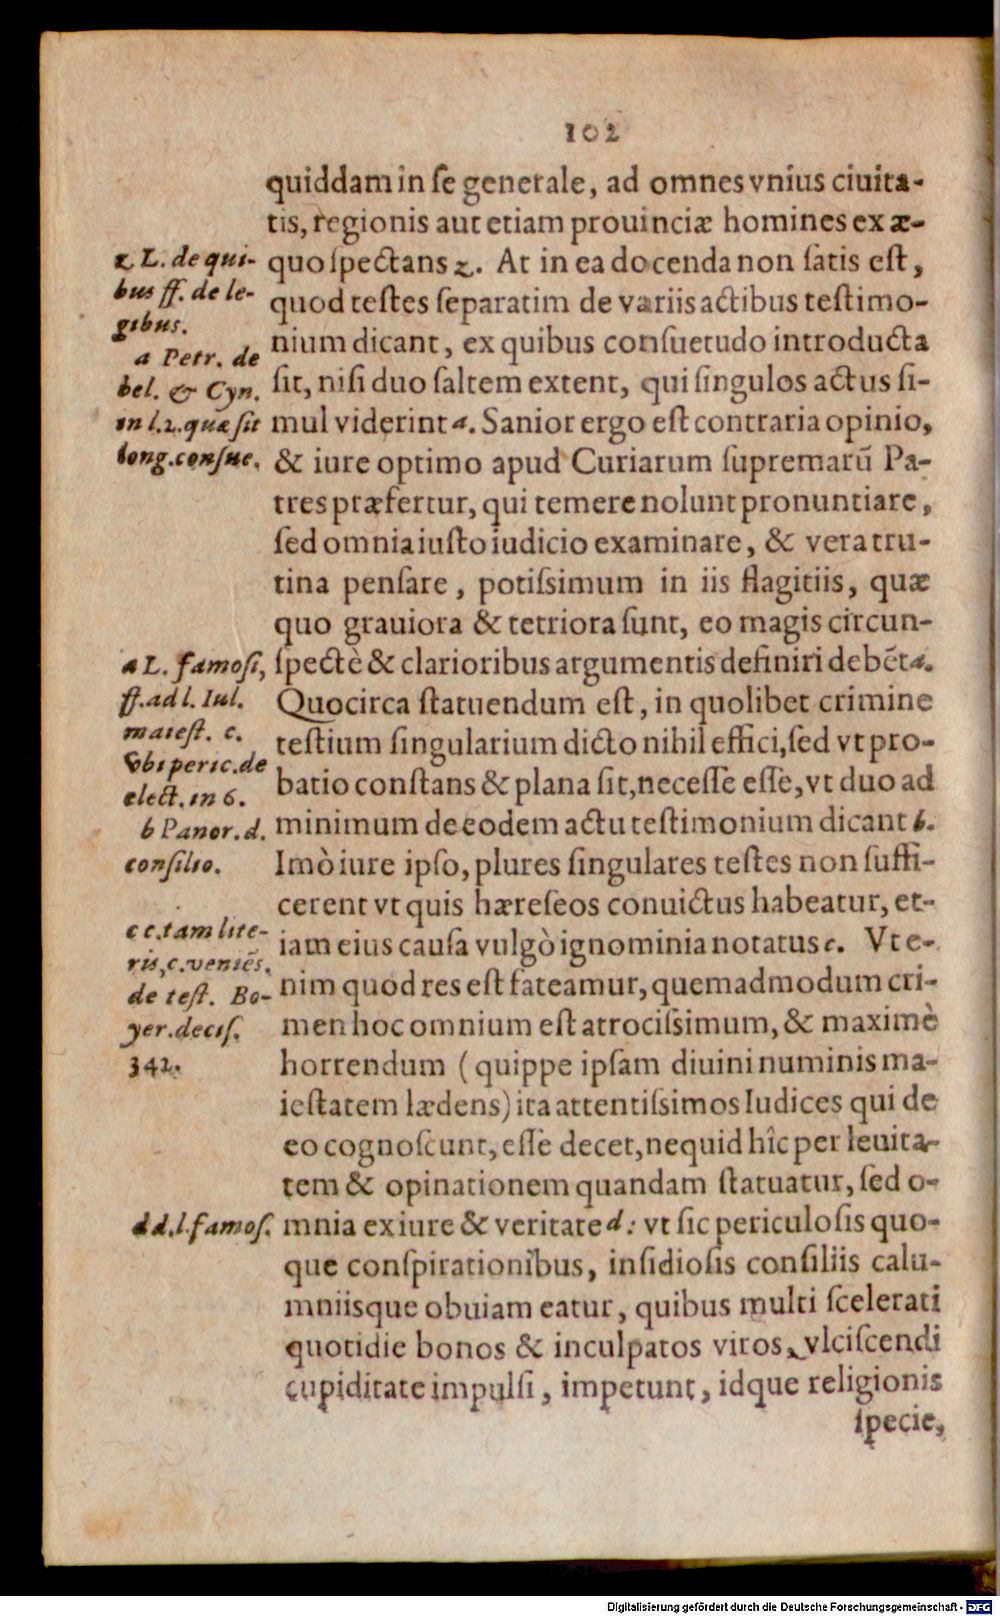 102
quiddam in ſe generale, ad omnes vnius ciuita-
tis, regionis aut etiam prouinciæ homines ex æ-
quo ſpectans z. At in ea docenda non ſatis eſt,
quod teſtes ſeparatim de variis actibus teſtimo-
nium dicant, ex quibus conſuetudo introducta
ſit, niſi duo ſaltem extent, qui ſingulos actus ſi-
mul viderint a. Sanior ergo eſt contraria opinio,
& iure optimo apud Curiarum ſupremarū Pa-
tres præfertur, qui temere nolunt pronuntiare,
ſed omnia iuſto iudicio examinare, & vera tru-
tina penſare, potiſsimum in iis flagitiis, quæ
quo grauiora & tetriora ſunt, eo magis circun-
ſpectè & clarioribus argumentis definiri debēt a.
Quocirca ſtatuendum eſt, in quolibet crimine
teſtium ſingularium dicto nihil effici, ſed vt pro-
batio conſtans & plana ſit, neceſſe eſſe, vt duo ad
minimum de eodem actu teſtimonium dicant b.
Imò iure ipſo, plures ſingulares teſtes non ſuffi-
cerent vt quis hæreſeos conuictus habeatur, et-
iam eius cauſa vulgò ignominia notatus c. Vt e-
nim quod res eſt fateamur, quemadmodum cri-
men hoc omnium eſt atrociſsimum, & maximè
horrendum (quippe ipſam diuini numinis ma-
ieſtatem lædens) ita attentiſsimos Iudices qui de
eo cognoſcunt, eſſe decet, nequid hîc per leuita-
tem & opinationem quandam ſtatuatur, ſed o-
mnia ex iure & veritate d: vt ſic periculoſis quo-
que conſpirationibus, inſidioſis conſiliis calu-
mniisque obuiam eatur, quibus multi ſcelerati
quotidie bonos & inculpatos viros, vlciſcendi
cupiditate impulſi, impetunt, idque religionis
ſpecie,
z L. de qui-
bus ff. de le-
gibus.
a Petr. de
bel. & Cyn.
in l.2. quæ ſit
long. conſue.
a L. famoſi,
ff. ad l. Iul.
maieſt. c.
vbi peric. de
elect. in 6.
b Panor. d.
conſilio.
c c. tam lite-
ris, c. veniēs.
de teſt. Bo-
yer. deciſ.
342.
d d. l. famoſ.
Digitalisierung gefördert durch die Deutsche Forschungsgemeinschaft - DFG